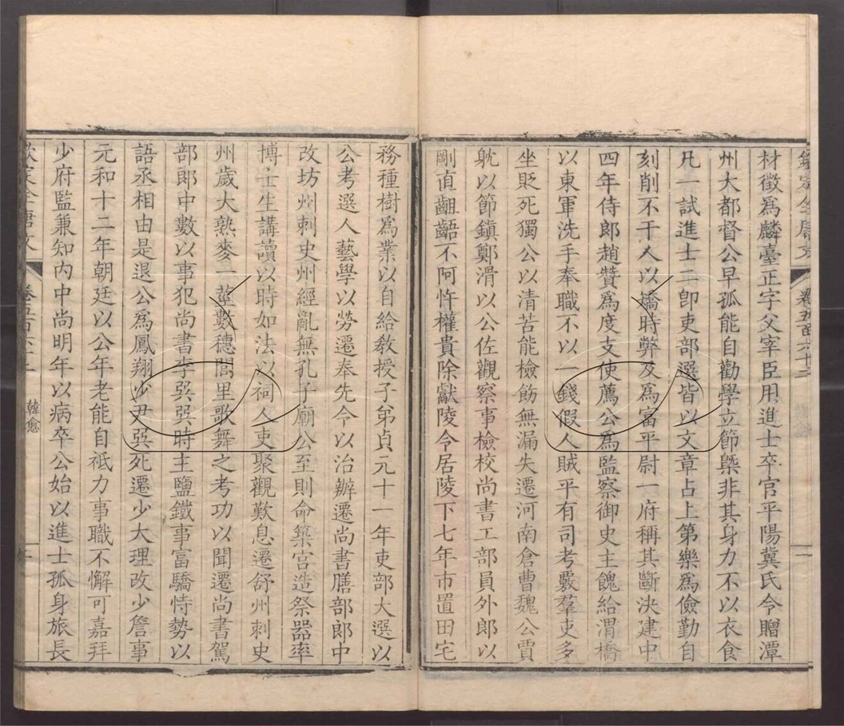 欽定全唐文 卷五百六十三 一
材徵爲麟臺正字父宰臣用進士卒官平陽冀氏令贈潭
州大都督公早孤能自勸學立節槩非其身力不以衣食
凡一試進士二卽吏部選皆以文章占上第樂爲儉勤自
刻削不干人以撟時弊及爲富平尉一府稱其斷決建中
四年侍郎趙贊爲度支使薦公爲監察御史主餽給渭橋
以東軍洗手奉職不以一錢假人賊平有司考覈羣吏多
坐貶死獨公以清苦能檢飭無漏失遷河南倉曹魏公賈
躭以節鎮鄭滑以公佐觀察事檢校尚書工部員外郎以
剛直齟齬不阿忤權貴除獻陵令居陵下七年市置田宅
務種樹爲業以自給敎授子弟貞元十一年吏部大選以
公考選人藝學以勞遷奉先令以治辦遷尚書膳部郎中
改坊州刺史州經亂無孔子廟公至則命築宮造祭器率
博士生講讀以時如法以祠人吏聚觀歎息遷舒州刺史
州歲大熟麥一莖數穗閭里歌舞之考功以聞遷尚書駕
部郎中數以事犯尚書李巽巽時主鹽鐵事富驕恃勢以
語丞相由是退公爲鳳翔少尹巽死遷少大理改少詹事
元和十二年朝廷以公年老能自祗力事職不懈可嘉拜
少府監兼知內中尚明年以病卒公始以進士孤身旅長
欽定全唐文 卷五百六十三 韓愈